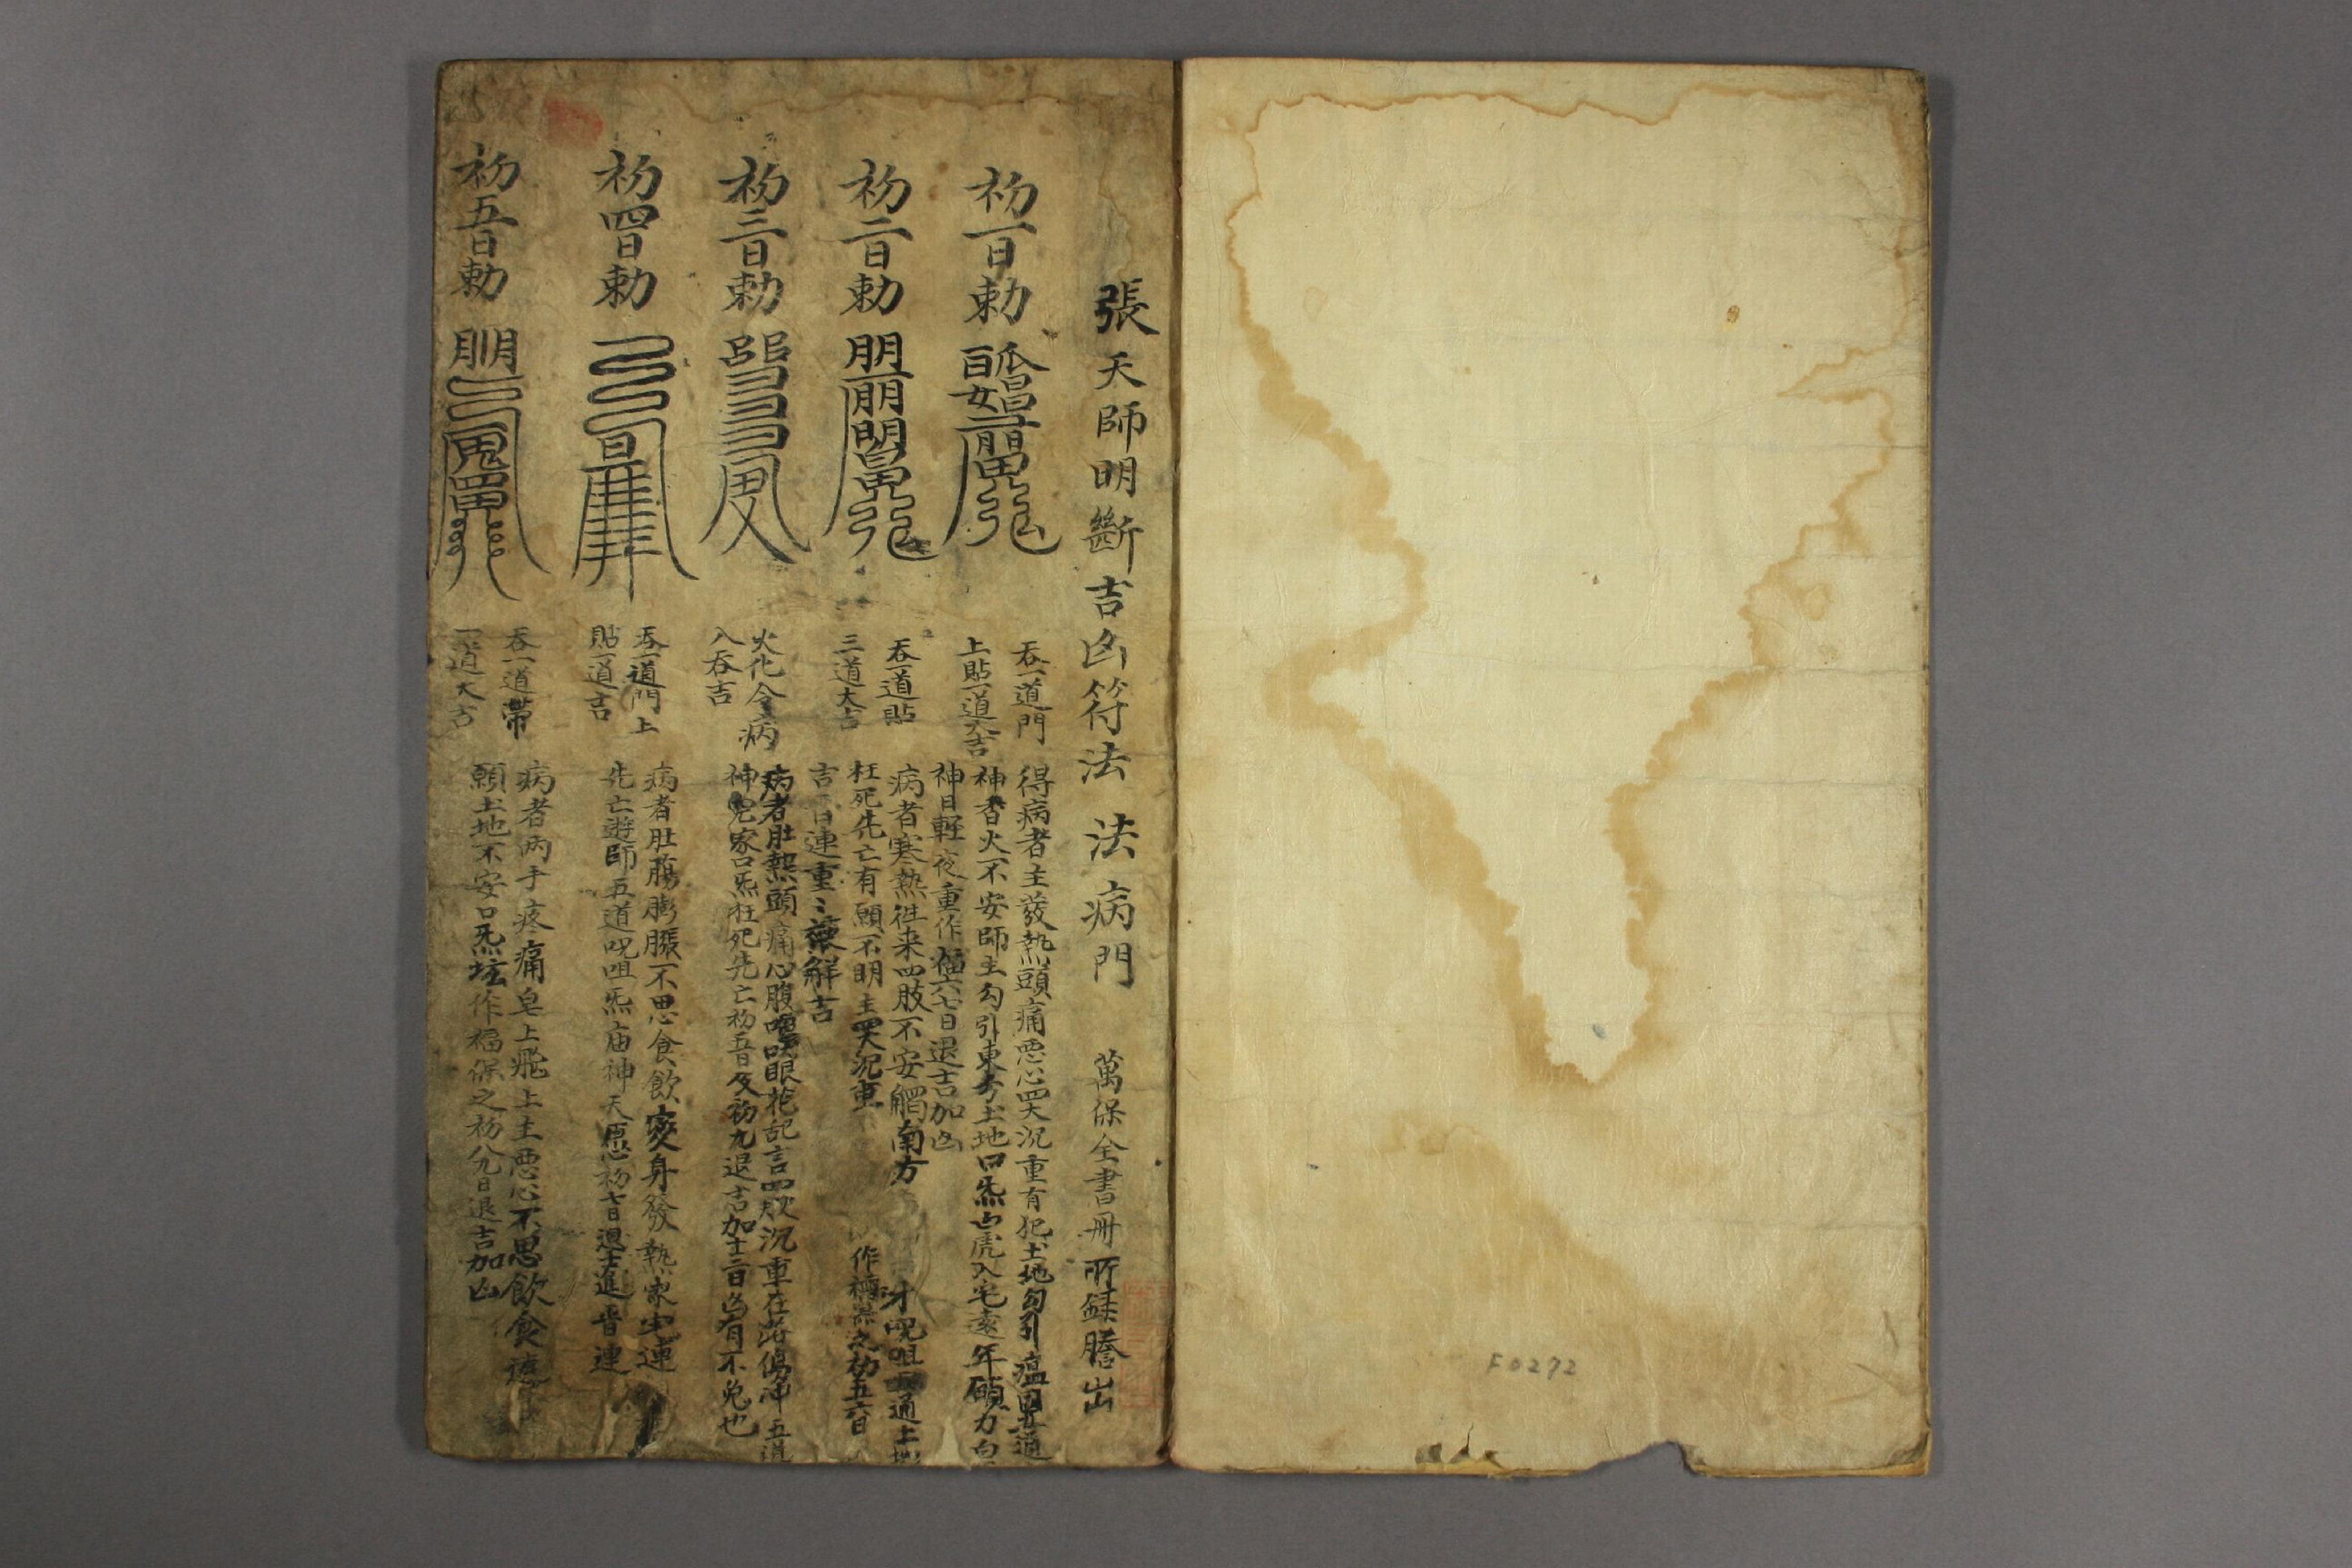 張天師明斷吉凶符法 法病門 萬保全書冊所録謄出
初一日勅
吞一道門
上貼一道大吉
得病者主發熱頭痛悪心四大沉重有犯土地勾引瘟五道
神香火不安師主勾引東方土地口炁白虎入宅遠年願力
神日輕夜重作福六七日退吉加凶
初二日勅
吞一道貼
三道大吉
病者寒熱往来四肢不安觸南方 呪咀一通土地
枉死先亡有願不明主四大沉重 作福炁之初五六日
吉 日連重〻禳解吉
初三日勅
火化令病
人吞吉
病者肚熱頭痛心腹眼花乱言四肢沉重在 傷神五道
神冤家口炁枉死先亡初五日及初九退吉加十二日凶有不免也
初四日勅
吞一道門上
貼一道吉
病者肚腸膨脹不思食飲變身發熱家宅連
先亡遊師五道呪咀炁庙神天愿初七日退
初五日勅
吞一道帶
一道大吉
病者両手疼痛皂上飛上主悪心不思飲食
願土地不安口炁坛作福保之初八九日退吉加凶
F0272